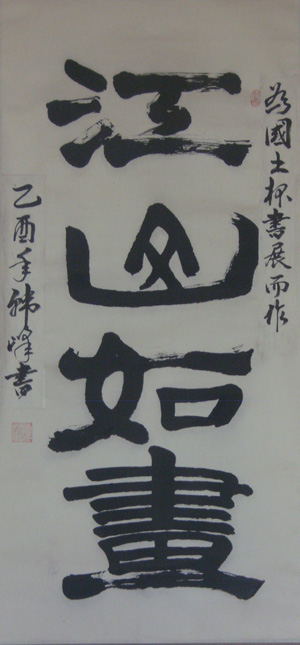 為國土杯書展而作
江山如畫
乙酉年書